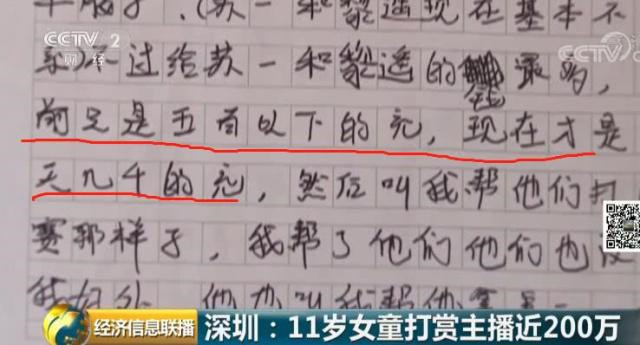 CCTV 2
财经
CCTV.c
半服了.(苏一和黎遥现在基本不
不过给苏一和黎遥的钱最多,
前只是五百以下的充,现在才是
天几千的充,然后叫我帮他们打
赛那样子,我帮了他们他们也没
我好处,他也叫我帮他
经济信息联播
深圳:11岁女童打赏主播近200万